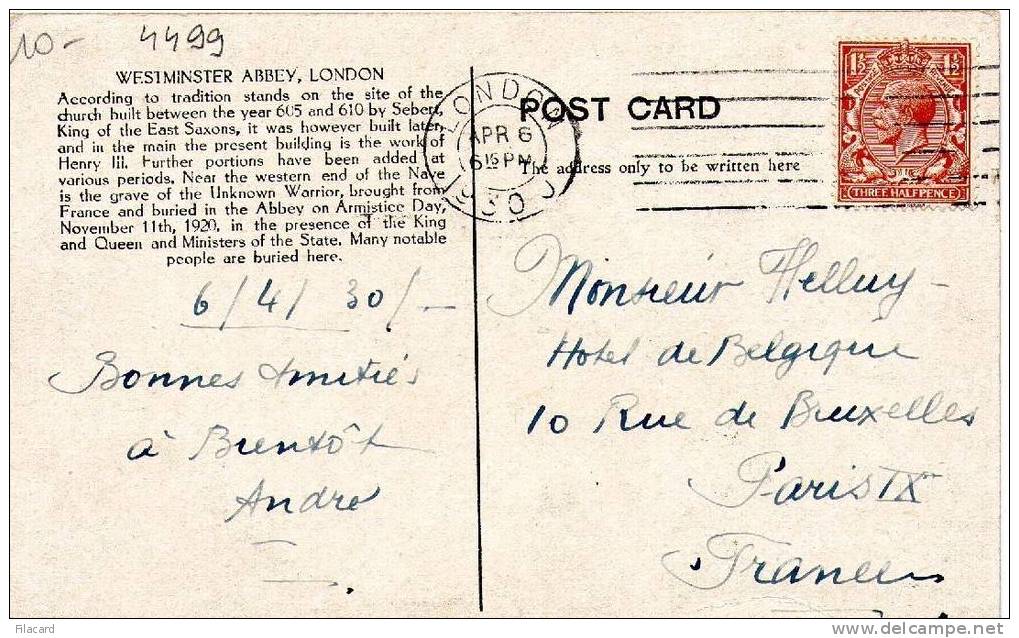 10-
4499
WESTMINSTER ABBEY, LONDON
According to tradition stands on the site of the
church huilt between the year 605 and 610 by Sebert,
King of the East Saxons, it was however built later,
and in the main the present building is the work of
Henry III. Further portions have been added at
various periods. Near the western end of the Nave
is the grave of the Unknown Warrior, brought from
France and buried in the Abbey on Armistice Day,
November 11th, 1920, in the presence of the King
and Queen and Ministers of the State. Many notable
people are buried here.
6/4/30/-
Bonnes Amitiés
à Bientôt
André
LONDON
APR 6
6 15 PM
30
POST CARD
The address only to be written here
1½ 1½
POSTAGE REVENUE
THREE HALFPENCE
Monsieur Helluy -
Hotel de Belgique
10 Rue de Bruxelles
Paris IX
France
Filacard
delcampe.net